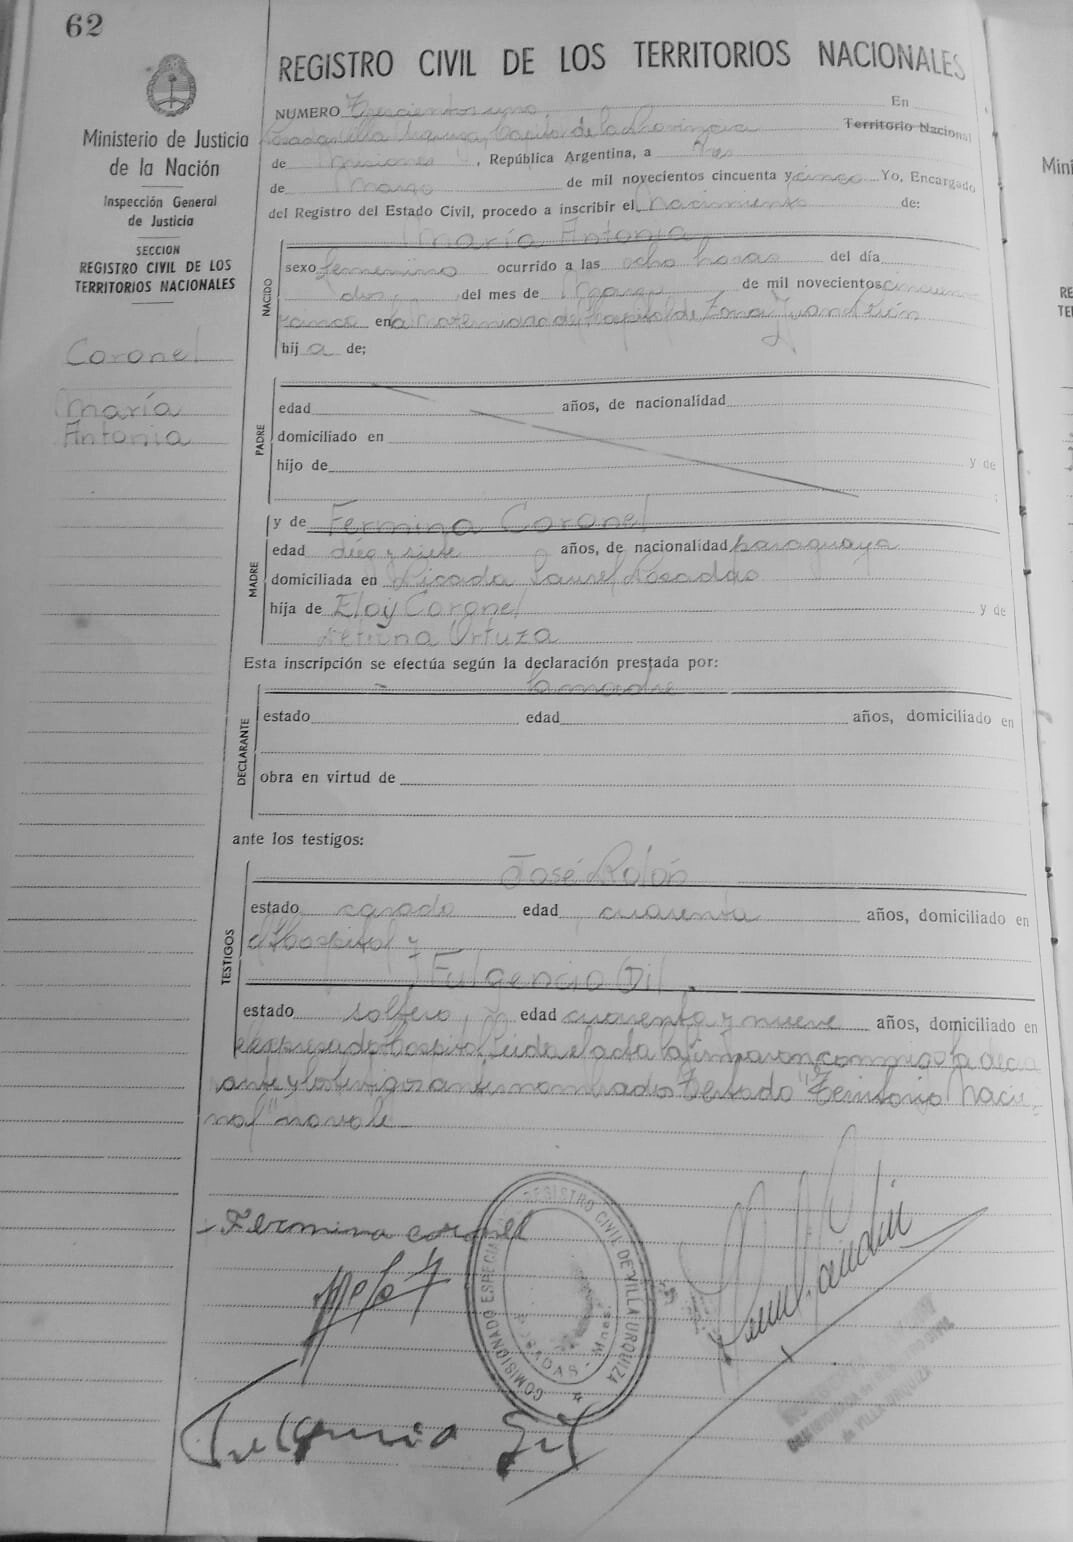 62
REGISTRO CIVIL DE LOS TERRITORIOS NACIONALES
Ministerio de Justicia
de la Nación
Inspección General
de Justicia
SECCION
REGISTRO CIVIL DE LOS
TERRITORIOS NACIONALES
Coronel
María
Antonia
NUMERO Trescientos uno En
Villa Urquiza, Capital de la Provincia Territorio Nacional
de Misiones, República Argentina, a tres
de Marzo de mil novecientos cincuenta y cinco Yo, Encargado
del Registro del Estado Civil, procedo a inscribir el Nacimiento de:
María Antonia
NACIDO
sexo femenino ocurrido a las ocho horas del día
dos, del mes de Marzo de mil novecientos
en la Maternidad del Hospital de Zona Juan Perón
hija de;
PADRE
edad años, de nacionalidad
domiciliado en
hijo de y de
MADRE
y de Fermina Coronel
edad diez y siete años, de nacionalidad paraguaya
domiciliada en Picada Laurel Posadas
hija de Eloy Coronel y de
Ortuza
Esta inscripción se efectúa según la declaración prestada por:
la madre
DECLARANTE
estado edad años, domiciliado en
obra en virtud de
ante los testigos:
José Rolón
TESTIGOS
estado casado edad cuarenta años, domiciliado en
el Hospital y
Fulgencio Gil
estado soltero, edad cuarenta y nueve años, domiciliado en
el expresado Hospital. Leída el acta la firmaron conmigo la decla
rante y los testigos antes nombrados Testado "Territorio Nacio-
nal" no vale
Fermina coronel
Fulgencio Gil
COMISIONADO ESPECIAL REGISTRO CIVIL DE VILLA URQUIZA
POSADAS - Mnes.
de VILLA URQUIZA